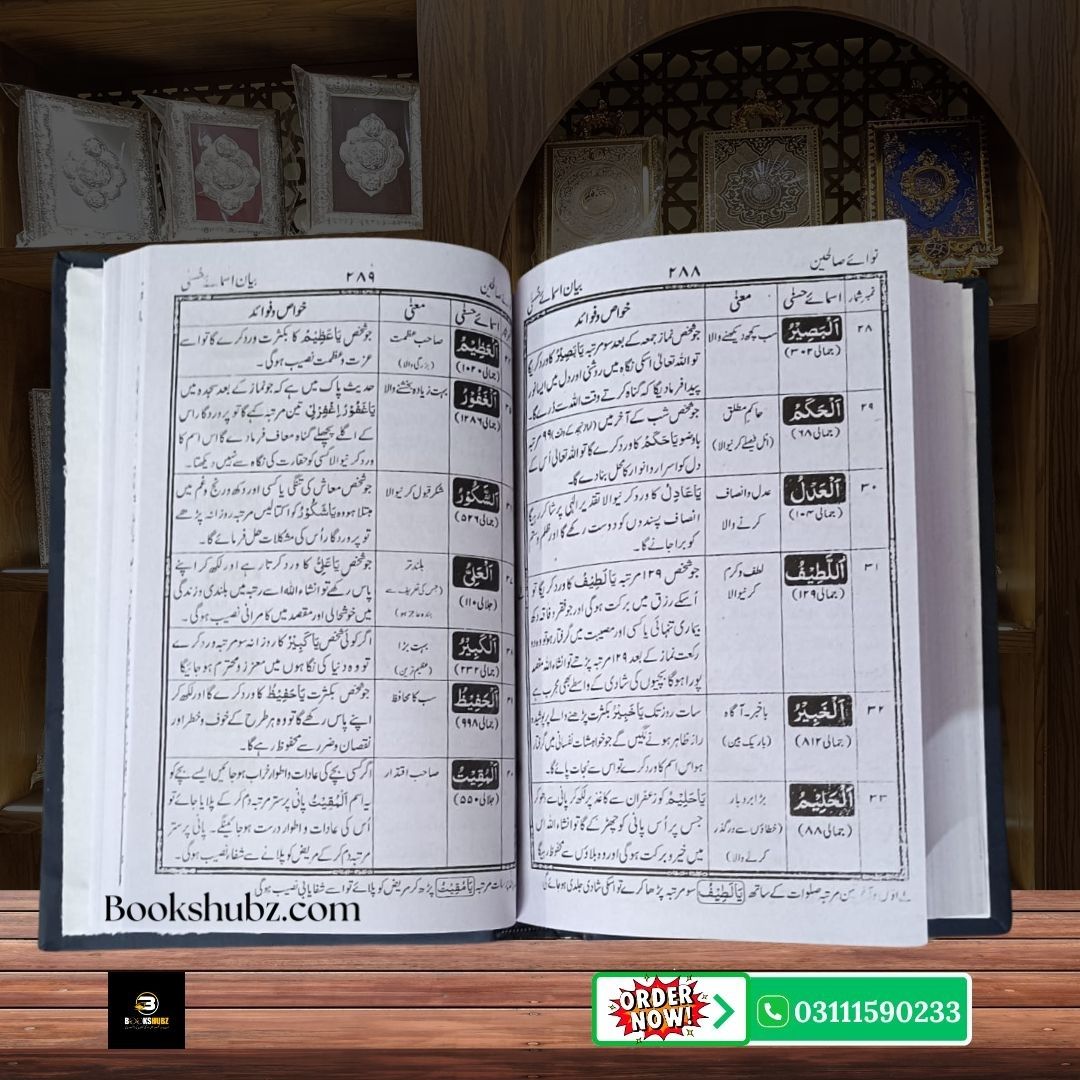 نوائے صالحین
۲۸۸
بیان اسمائے حسنیٰ
نمبر شمار
اسمائے حسنیٰ
معنیٰ
خواص و فوائد
۲۸
اَلْبَصِیْرُ
(جمالی ۳۰۲)
سب کچھ دیکھنے والا
جو شخص نماز جمعہ کے بعد سو مرتبہ یَا بَصِیْرُ کا ورد کریگا
تو اللہ تعالیٰ اسکی نگاہ میں روشنی اور دل میں ایسا نور
پیدا فرما دیگا کہ گناہ کرتے وقت اللہ سے ڈرے گا۔
۲۹
اَلْحَکَمُ
(جمالی ۶۸)
حاکم مطلق
(اٹل فیصلے کرنیوالا)
جو شخص شب کے آخر میں (نماز تہجد کے وقت) ۹۹ مرتبہ
باوضو یَا حَکَمُ کا ورد کرے گا تو اللہ تعالیٰ اُس کے
دل کو اسرار و انوار کا محل بنا دے گا۔
۳۰
اَلْعَدْلُ
(جمالی ۱۰۴)
عدل و انصاف
کرنے والا
یَا عَادِلُ کا ورد کرنیوالا تقدیر الٰہی پر شاکر رہیگا
انصاف پسندوں کو دوست رکھے گا اور ظلم و ستم
کو برا جانے گا۔
۳۱
اَللَّطِیْفُ
(جمالی ۱۲۹)
لطف و کرم
کرنیوالا
جو شخص ۱۲۹ مرتبہ یَا لَطِیْفُ کا ورد کریگا تو
اُسکے رزق میں برکت ہوگی اور جو فقر و فاقہ دکھ
بیماری تنہائی یا کسی اور مصیبت میں گرفتار ہو تو وہ دو
رکعت نماز کے بعد ۱۲۹ مرتبہ پڑھے تو انشاء اللہ مقصد
پورا ہوگا بچیوں کی شادی کے واسطے بھی مجرب ہے
۳۲
اَلْخَبِیْرُ
(جمالی ۸۱۲)
باخبر۔ آگاہ
(باریک بین)
سات روز تک یَا خَبِیْرُ بکثرت پڑھنے والے پر پوشیدہ
راز ظاہر ہونے لگیں گے جو خواہشات نفسانی میں گرفتار
ہو اس اسم کا ورد کرے تو اس سے نجات پائے گا۔
۳۳
اَلْحَلِیْمُ
(جمالی ۸۸)
بڑا بردبار
(خطاؤں سے درگذر
کرنے والا)
یَا حَلِیْمُ کو زعفران سے کاغذ پر لکھ کر پانی سے دھو کر
جس پر اُس پانی کو چھڑکے گا تو انشاء اللہ اس
میں خیر و برکت ہوگی اور وہ بلاؤں سے محفوظ رہیگا
مرتبہ صلوات کے ساتھ یَا لَطِیْفُ سو مرتبہ پڑھا کرے تو اسکی شادی جلدی ہو جائے گی
۲۸۹
بیان اسمائے حسنیٰ
اسمائے حسنیٰ
معنیٰ
خواص و فوائد
اَلْعَظِیْمُ
(جمالی ۱۰۲۰)
صاحب عظمت
(بزرگی والا)
جو شخص یَا عَظِیْمُ کا بکثرت ورد کرے گا تو اسے
عزت و عظمت نصیب ہوگی۔
اَلْغَفُوْرُ
(جمالی ۱۲۸۶)
بہت زیادہ بخشنے والا
حدیث پاک میں ہے کہ جو نماز کے بعد سجدہ میں
یَا غَفُوْرُ اِغْفِرْلِیْ تین مرتبہ کہے گا تو پروردگار اس
کے اگلے پچھلے گناہ معاف فرما دے گا اس اسم کا
ورد کرنیوالا کسی کو حقارت کی نگاہ سے نہیں دیکھتا۔
اَلشَّکُوْرُ
(جمالی ۵۲۶)
شکر قبول کرنیوالا
جو شخص معاش کی تنگی یا کسی اور دکھ و رنج و غم میں
مبتلا ہو وہ یَا شَکُوْرُ کو اکتالیس مرتبہ روزانہ پڑھے
تو پروردگار اُس کی مشکلات حل فرمائے گا۔
اَلْعَلِیُّ
(جلالی ۱۱۰)
بلند تر
(جس کی تعریف سے
بندہ عاجز ہو)
جو شخص یَا عَلِیُّ کا ورد کرتا رہے اور لکھ کر اپنے
پاس رکھے تو انشاء اللہ اسے رتبہ میں بلندی و زندگی
میں خوشحالی اور مقصد میں کامرانی نصیب ہوگی۔
اَلْکَبِیْرُ
(جمالی ۲۳۲)
بہت بڑا
(عظیم ترین)
اگر کوئی شخص یَا کَبِیْرُ کا روزانہ سو مرتبہ ورد کرے
تو وہ دنیا کی نگاہوں میں معزز و محترم ہو جائیگا
اَلْحَفِیْظُ
(جمالی ۹۹۸)
سب کا محافظ
جو شخص بکثرت یَا حَفِیْظُ کا ورد کرے گا اور لکھ کر
اپنے پاس رکھے گا تو وہ ہر طرح کے خوف و خطر اور
نقصان و ضرر سے محفوظ رہے گا۔
اَلْمُقِیْتُ
(جلالی ۵۵۰)
صاحب اقتدار
اگر کسی بچے کی عادات و اطوار خراب ہو جائیں ایسے بچے کو
یہ اسم اَلْمُقِیْتُ پانی پر ستر مرتبہ دم کر کے پلایا جائے تو
اُس کی عادات و اطوار درست ہو جائینگے۔ پانی پر ستر
مرتبہ دم کر کے مریض کو پلانے سے شفا نصیب ہوگی۔
سات مرتبہ یَا مُقِیْتُ پڑھ کر مریض کو پلائے تو اسے شفایابی نصیب ہوگی
Bookshubz.com
BOOKSHUBZ
ORDER
NOW!
03111590233